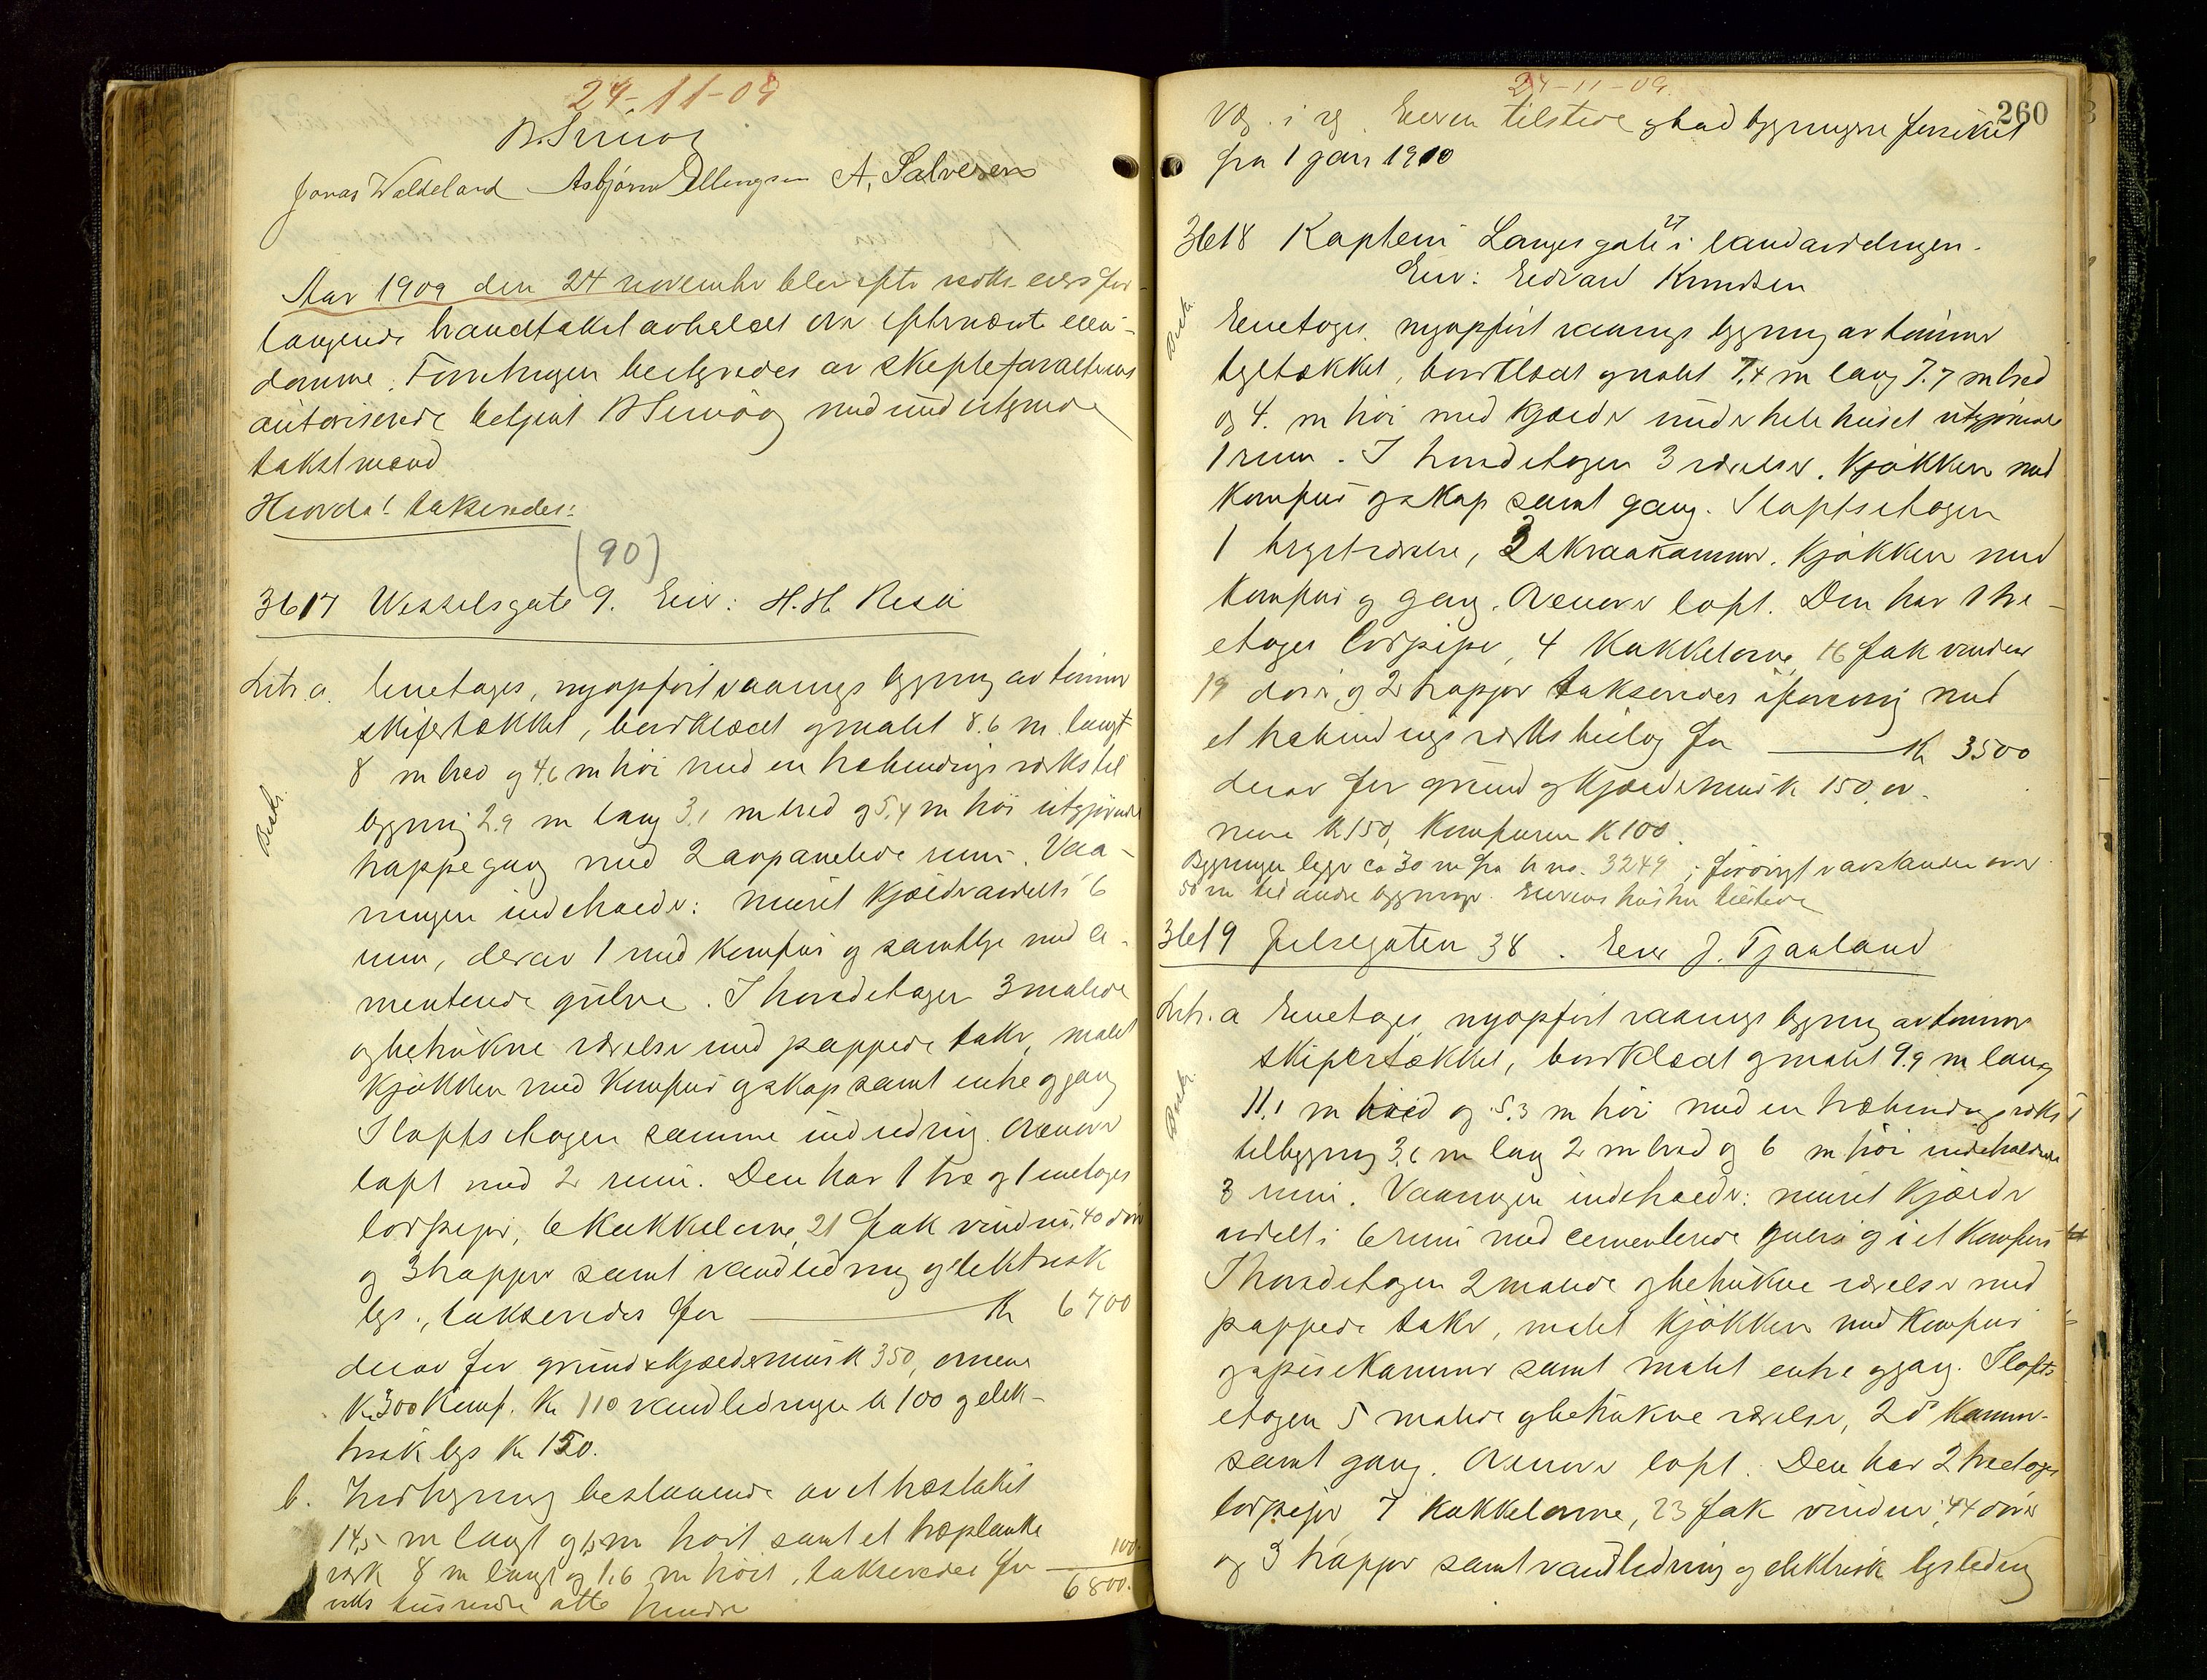 24-11-09
Jonas Waldeland Asbjørn Ellingsen A. Salvesen
Aar 1909 den 24 november blev efter vedk. eiers for-
langende brandtakst avholdt over efternævnte eien-
domme. Forretningen bestyredes av skifteforvalterens
autoriserede betjent med undertegnede
takstmænd
Hvorda! takseredes:
(90)
3617 Wesselsgate 9. Eier: H. H. Resa
Litr. a. Enetages, nyopført vaanings bygning av tømmer
skifertækket, bordklædt og malet 8.6 m. langt
8 m bred og 4,6 m høi med en træbindingsverks til
Beskr.
bygning 2.9 m lang 3,1 m bred og 5,4 m høi utgjørende
trappegang med 2 avpanelede rum. Vaa-
ningen indeholder: muret kjælder avdelt i 6
rum, derav 1 med komfur og samtlige med ce-
menterede gulve. I hovedetagen 3 malede
og betrukne værelser med pappede taker, malet
kjøkken med komfur og skap samt entre og gang
I loftsetagen samme indredning. Ovenover
loft med 2 rum. Den har 1 tre og 1 enetages
korspiper, 6 kakkelovne, 21 fak vinduer, 40 dører
og 3 trapper samt vandledning og elektrisk
lys, takseredes for K 6700
derav for grund & kjældermur k 350, ovnene
K 300 Komf. K 110 vandledningen k 100 og elek-
trisk lys K 150.
b. Indhegning bestaaende av et træstakit
14,5 m langt og 1,5 m høit samt et træplanke
verk 8 m langt og 1,6 m høit, takseredes for 100.
6800.
seks tusinde otte hundre
24-11-09.
260
Vg. i rg. Eieren tilstede og bad bygningene forsikret
fra 1 jan 1910
3618 Kaptein Langes gate 27 i landavdelingen.
Eier: Edvard Knudsen
Beskr.
Enetages. nyopført vaanings bygning av tømmer
tegltækket, bordklædt og malet 7,4 m lang 7.7 m bred
og 4. m høi med kjælder under hele huset utgjørende
1 rum. I hovedetagen 3 værelser. Kjøkken med
komfur og skap samt gang. I loftsetagen
1 kvistværelse, 2 skraakammer. Kjøkken med
komfur og gang. Ovenover loft. Den har 1 tre-
etages korspipe, 4 kakkelovne, 16 fak vinduer
19 dører og 2 trapper takseredes i forening med
et træbindingsverks bislag for K 3500
derav for grund og kjældermur k 150, ov-
nene K 150, Komfuren K 100.
Bygningen ligger ca 30 m fra br. no. 3249, forøvrigt avstanden over
50 m til andre bygninger. Eierens hustru tilstede
3619 Jelsegaten 38. Eier J. Tjaaland
Litr. a Enetages nyopført vaanings bygning av tømmer
skifertækket, bordklædt og malet 9.9 m lang
Beskr.
11,1 m bred og 5.3 m høi med en træbindingsverks
tilbygning 3,6 m lang 2 m bred og 6 m høi indeholdende
3 rum. Vaaningen indeholder: muret kjælder
avdelt i 6 rum med cementerede gulve og i et komfur
I hovedetagen 2 malede og betrukne værelser med
pappede taker, malet kjøkken med komfur
og spisekammer samt malet entre og gang. I lofts
etagen 5 malede og betrukne værelser, 2 do kammer
samt gang. Ovenover loft. Den har 2 treetages
korspiper 7 kakkelovne, 23 fak vinduer, 44 dører
og 3 trapper samt vandledning og elektrisk lysledning